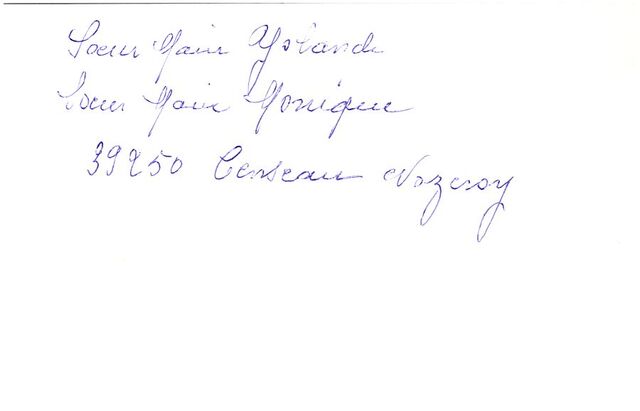 Soeur Marie Yolande
Soeur Marie Monique
39250 Censeau Nozeroy